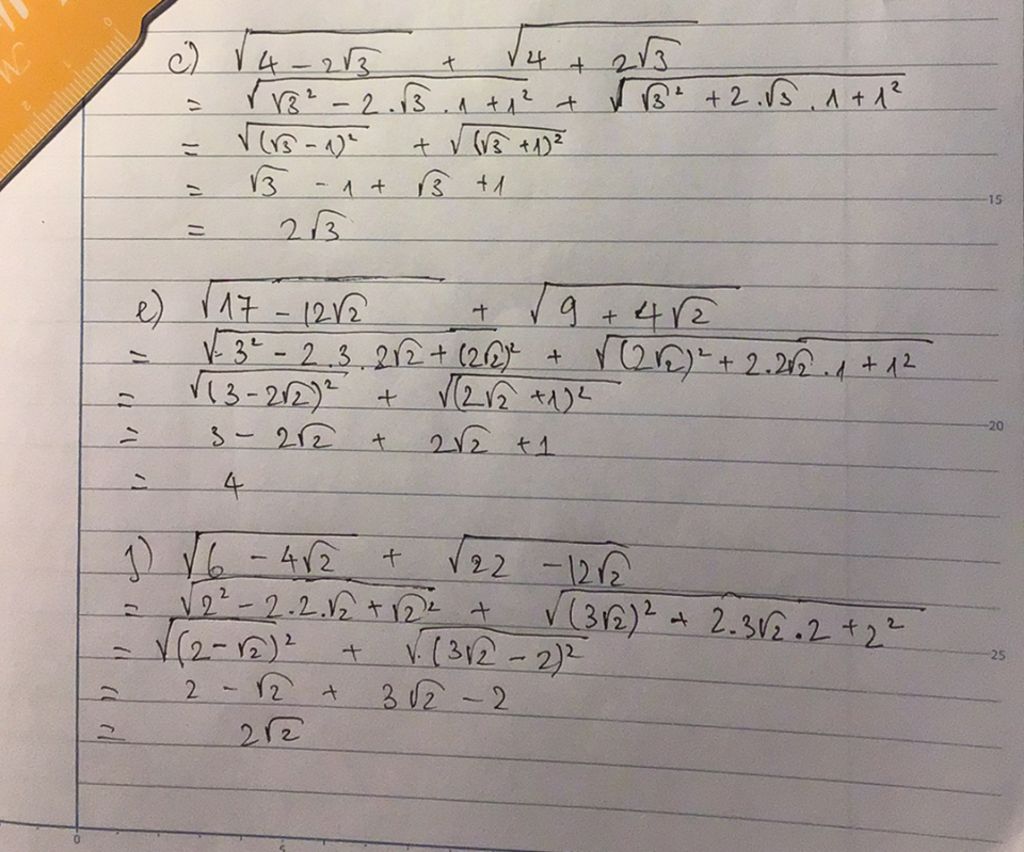 c) √(4 - 2√3) + √(4 + 2√3)
= √(√3² - 2.√3.1 + 1²) + √(√3² + 2.√3.1 + 1²)
= √((√3 - 1)²) + √((√3 + 1)²)
= √3 - 1 + √3 + 1
= 2√3
15
e) √(17 - 12√2) + √(9 + 4√2)
= √(3² - 2.3.2√2 + (2√2)²) + √((2√2)² + 2.2√2.1 + 1²)
= √((3 - 2√2)²) + √((2√2 + 1)²)
= 3 - 2√2 + 2√2 + 1
20
= 4
f) √(6 - 4√2) + √(22 - 12√2)
= √(2² - 2.2.√2 + √2²) + √((3√2)² + 2.3√2.2 + 2²)
= √((2 - √2)²) + √((3√2 - 2)²)
25
= 2 - √2 + 3√2 - 2
= 2√2
0 5